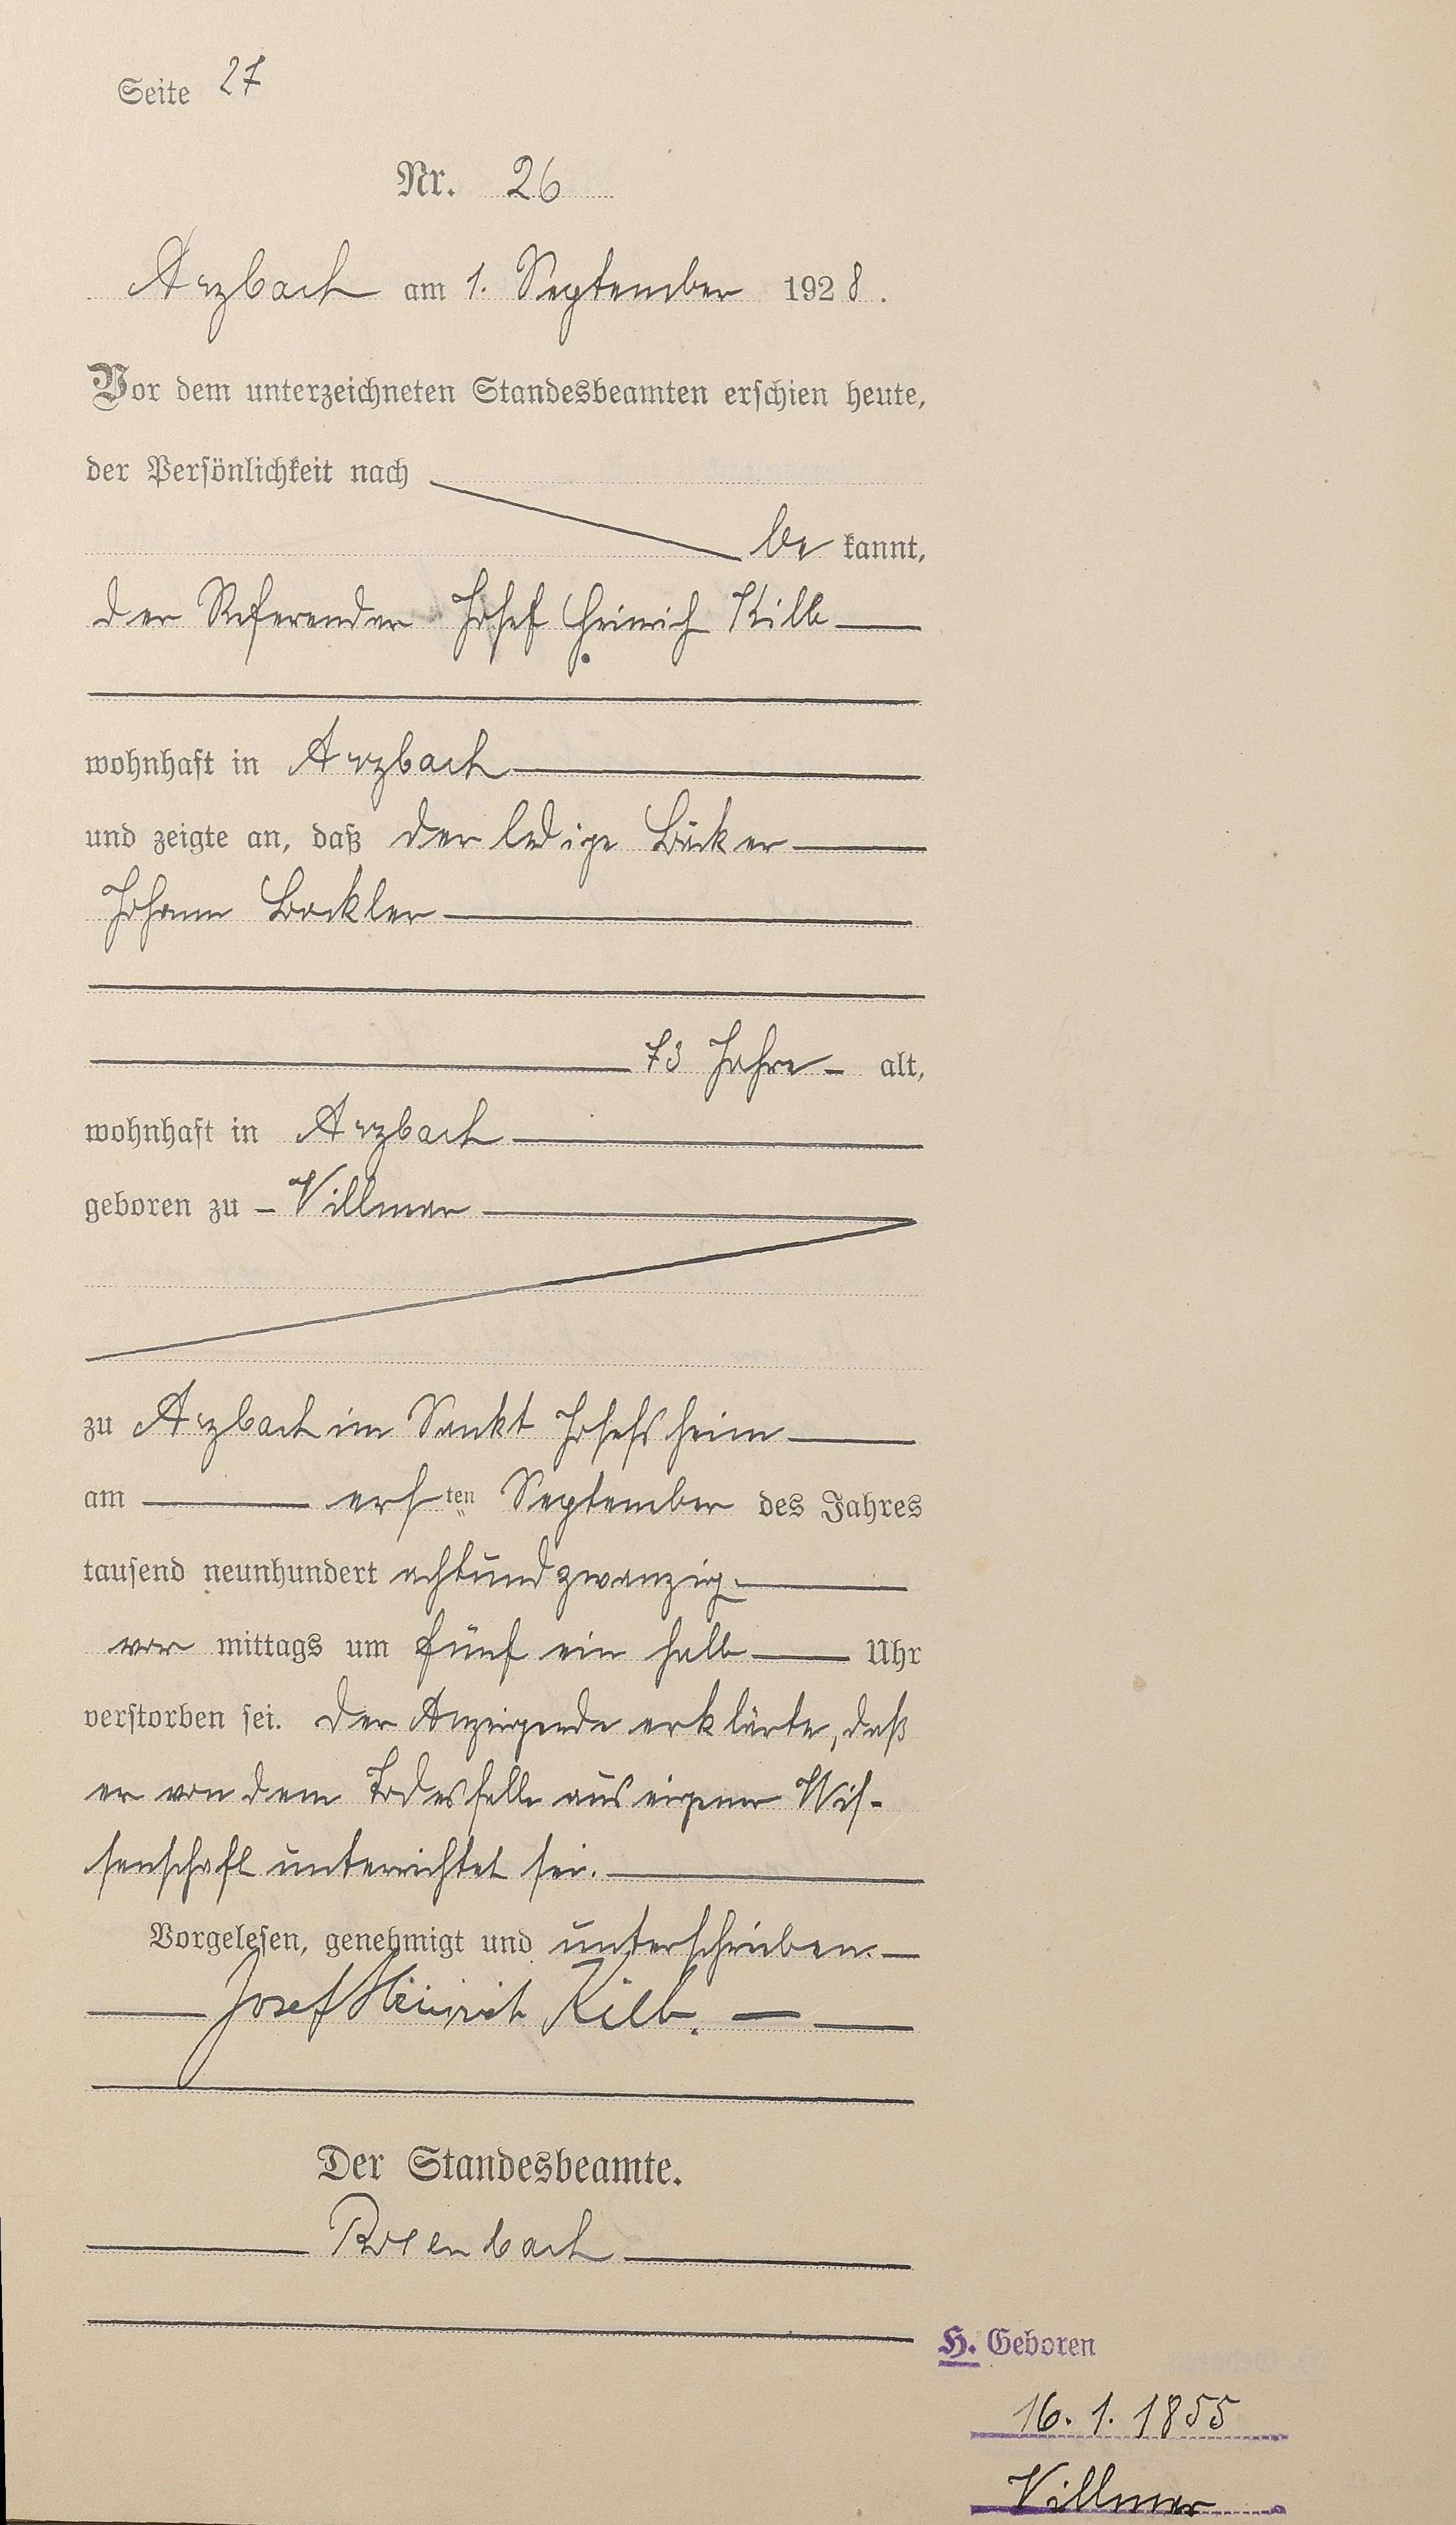 Seite 27
Nr. 26
Arzbach am 1. September 1928.
Vor dem unterzeichneten Standesbeamten erschien heute,
der Persönlichkeit nach
be kannt,
der Referendar Josef Heinrich Kilb
wohnhaft in Arzbach
und zeigte an, daß der ledige Bäcker
Johann Bockler
73 Jahre alt,
wohnhaft in Arzbach
geboren zu Villmar
zu Arzbach im Sankt Josefsheim
am ersten September des Jahres
tausend neunhundert achtundzwanzig
vor mittags um fünf ein halb Uhr
verstorben sei. Der Anzeigende erklärte, daß
er von dem Todesfalle aus eigener Wis-
senschaft unterrichtet sei.
Vorgelesen, genehmigt und unterschrieben.
Josef Heinrich Kilb.
Der Standesbeamte.
H. Geboren
16. 1. 1855
Villmar